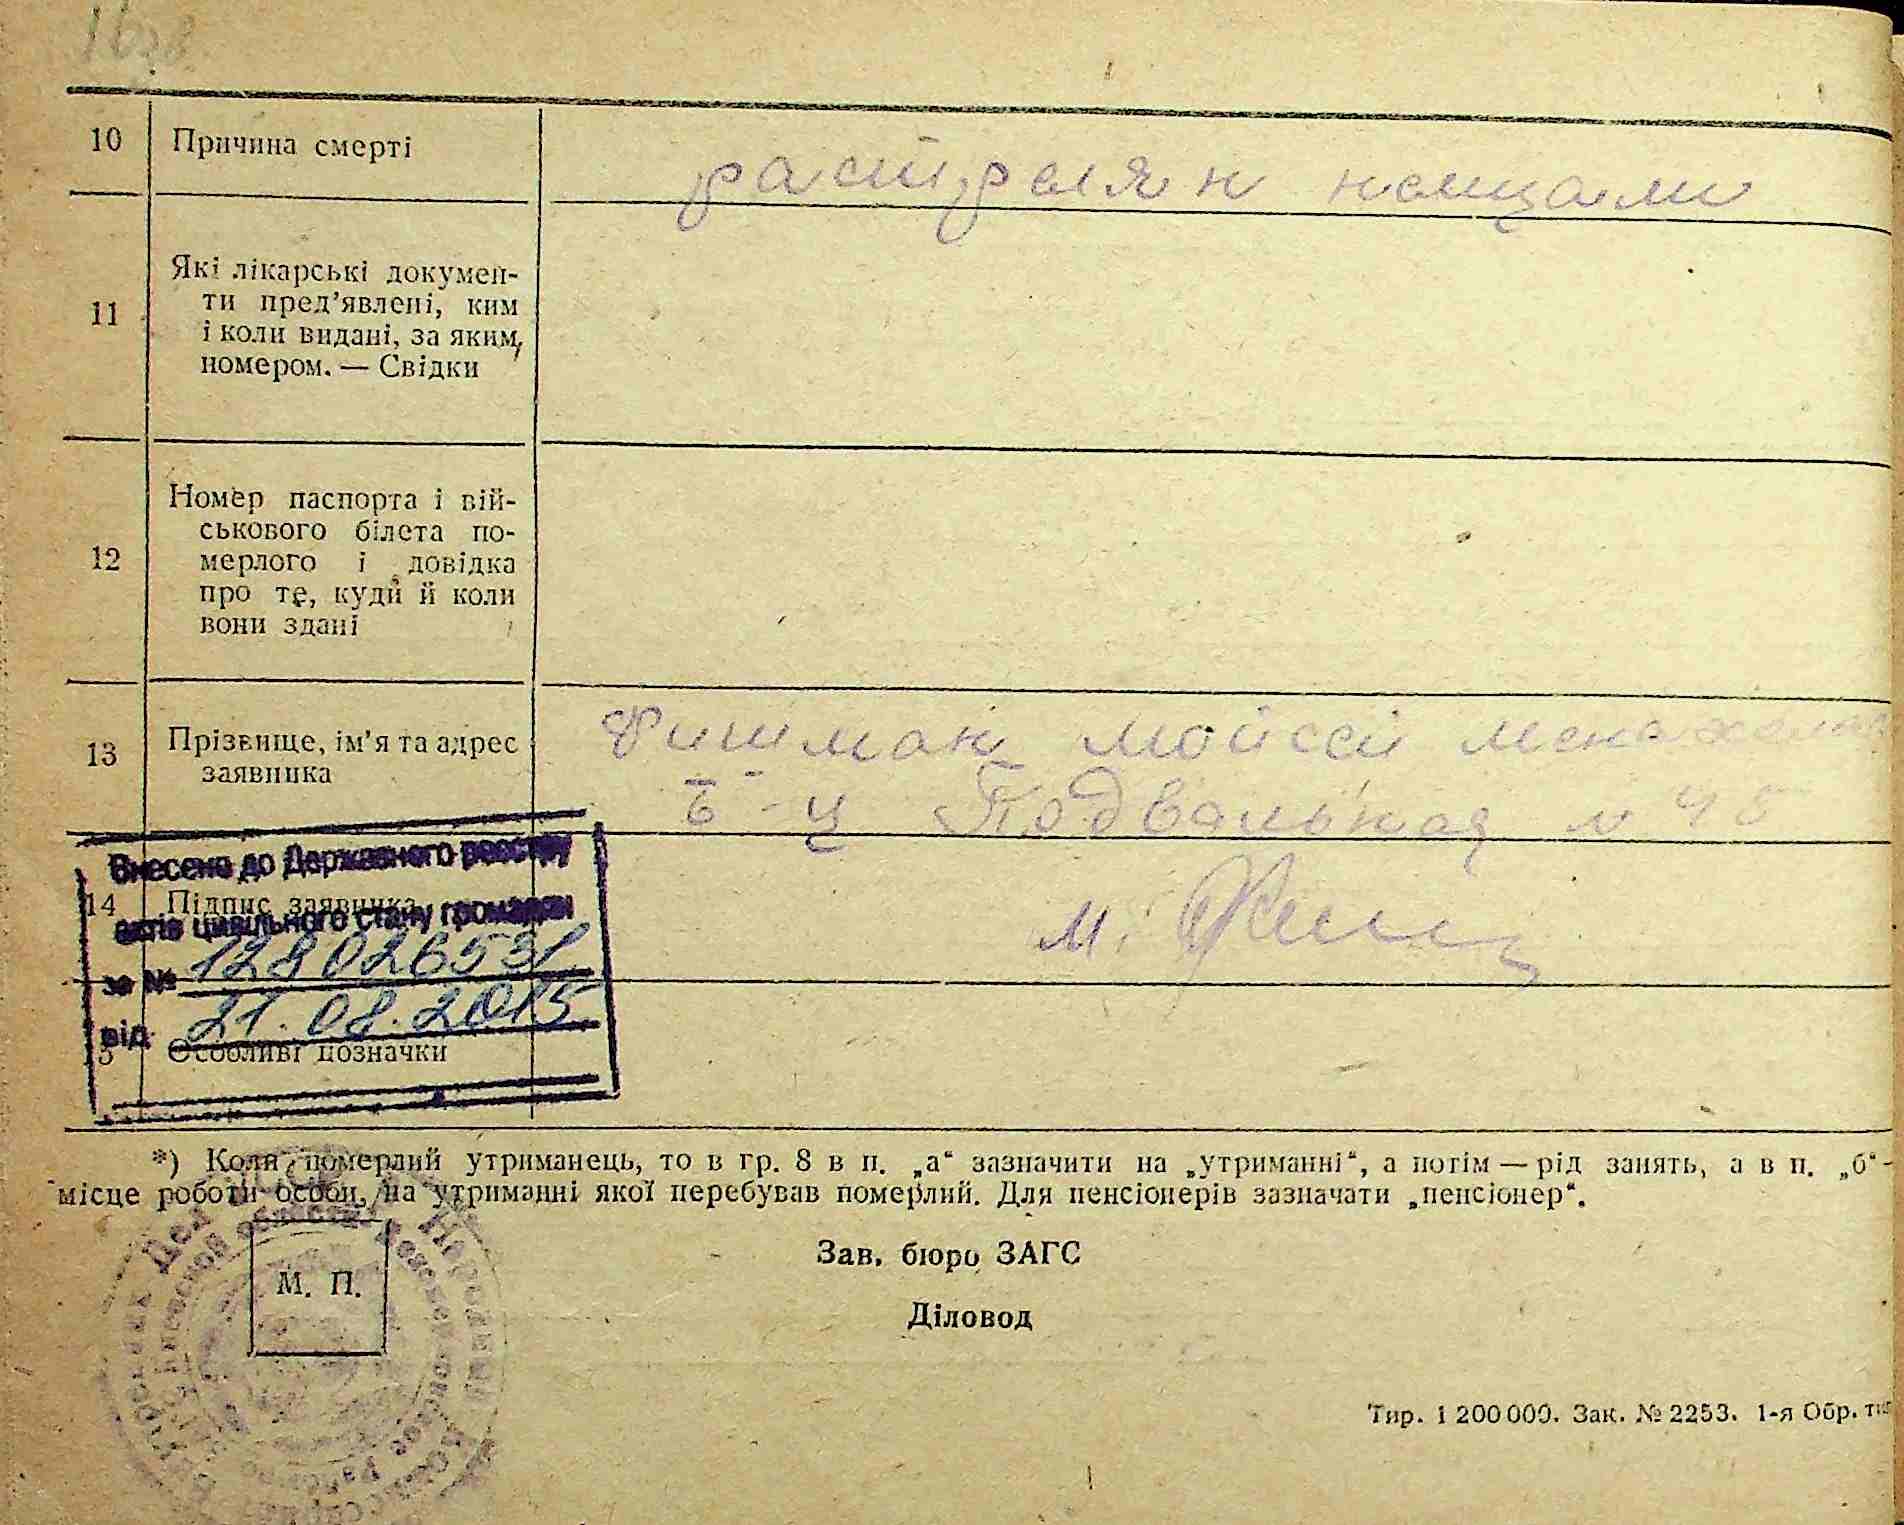 10 Причина смерті
расстрелян немцами
11 Які лікарські докумен-
ти пред’явлені, ким
і коли видані, за яким
номером. — Свідки
12 Номер паспорта і вій-
ськового білета по-
мерлого і довідка
про те, куди й коли
вони здані
13 Прізвище, ім’я та адрес
заявника
Фишман Мойсей
Б-Ц Подвальная
14 Підпис заявника
М.
Внесено до Державного реєстру
актів цивільного стану громадян
за № 128026531
від 21.08.2015
15 Особливі позначки
*) Коли померлий утриманець, то в гр. 8 в п. „а“ зазначити на „утриманні“, а потім — рід занять, а в п. „б“-
місце роботи особи, на утриманні якої перебував померлий. Для пенсіонерів зазначати „пенсіонер“.
М. П.
Зав. бюро ЗАГС
Діловод
Тир. 1 200 000. Зак. № 2253. 1-я Обр.